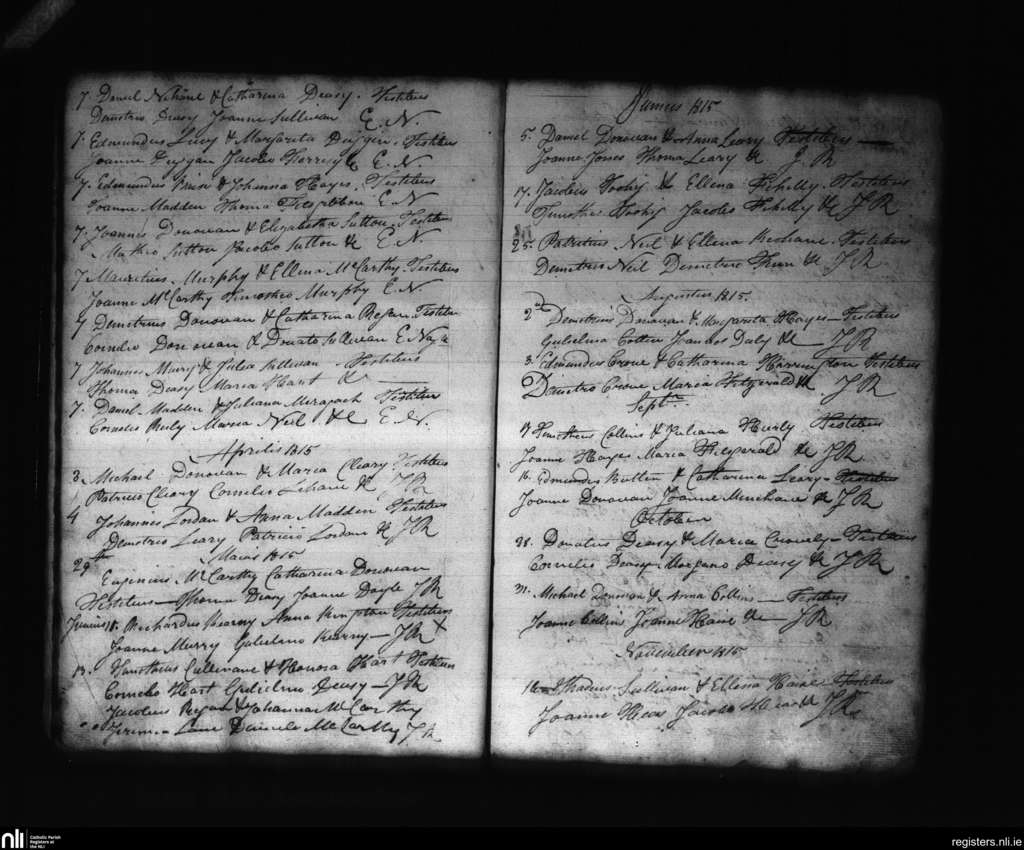 7. Daniel Nehane & Catharina Deasy. Testibus
Demetrio Deasy Joanne Sullivan E. N.
7. Edmundus Lucy & Margarita Duggin. Testibus
Joanne Duggan Jacobo & E. N.
7. Edmundus & Johanna Hayes. Testibus
Joanne Madden Thoma E. N
7. Joannes Donovan & Elizabetha Sutton Testibus
Matheo Sutton Jacobo Sutton &c E. N.
7 Mauritius Murphy & Ellena McCarthy Testibus
Joanne McCarthy Timotheo Murphy E. N
7 Demetrius Donovan & Catharina Regan Testibus
Cornelio Donovan & Donato Sullivan E. N
7 Johannes Murry & Julia Sullivan Testibus
Thoma Deasy Maria Hart &
7. Daniel Madden & Juliana Testibus
Cornelio Maria Neil &c E. N.
Aprilis 1815
3. Michael Donovan & Maria Cleary Testibus
Patricio Cleary Cornelio Lehane & JR
4 Johannes Lordan & Anna Madden Testibus
Demetrio Leary Patricio Lordan & JR
Maius 1815
29th Eugenius McCarthy Catharina Donovan
Testibus Thoma Deasy Joanne Doyle JR
Junius 11. Richardus Kearny Anna Testibus
Joanne Murry Gulielmo Kearny JR X
13. Timotheus Cullinane & Honora Hart Testibus
Cornelio Hart Gulielmo Deasy JR
Jacobus Regan & Johanna McCarthy
Jeremia Lane Daniele McCarthy JR
Junius 1815
5. Daniel Donovan & Anna Leary Testibus
Joanne Jones Thoma Leary & J. R
17. Jacobus Toohy & Ellena Testibus
Timotheo Toohy Jacobo &c JR
25. Patritius Neil & Ellena Testibus
Demetrio Neil Demetrio & JR
Augustus 1815.
2nd Demetrius Donovan & Margarita Hayes Testibus
Gulielmo Cotter Daly & JR
3. Edmundus Crone & Catharina Harrington Testibus
Demetrio Crone Maria Fitzgerald & JR
Septr
Timotheus Collins & Juliana Hurly Testibus
Joanne Hayes Maria Fitzgerald &c JR
16. Edmundus & Catharina Leary Testibus
Joanne Donovan Joanne & JR
October
Donatus Deasy & Maria Testibus
Cornelio Deasy Morgano Deasy & JR
31. Michael Donovan & Anna Collins Testibus
Joanne Collins Joanne &c JR
November 1815
16 Thadeus Sullivan & Ellena Testibus
Joanne Jacobo & JR
nli
Catholic Parish
Registers at
the NLI
registers.nli.ie